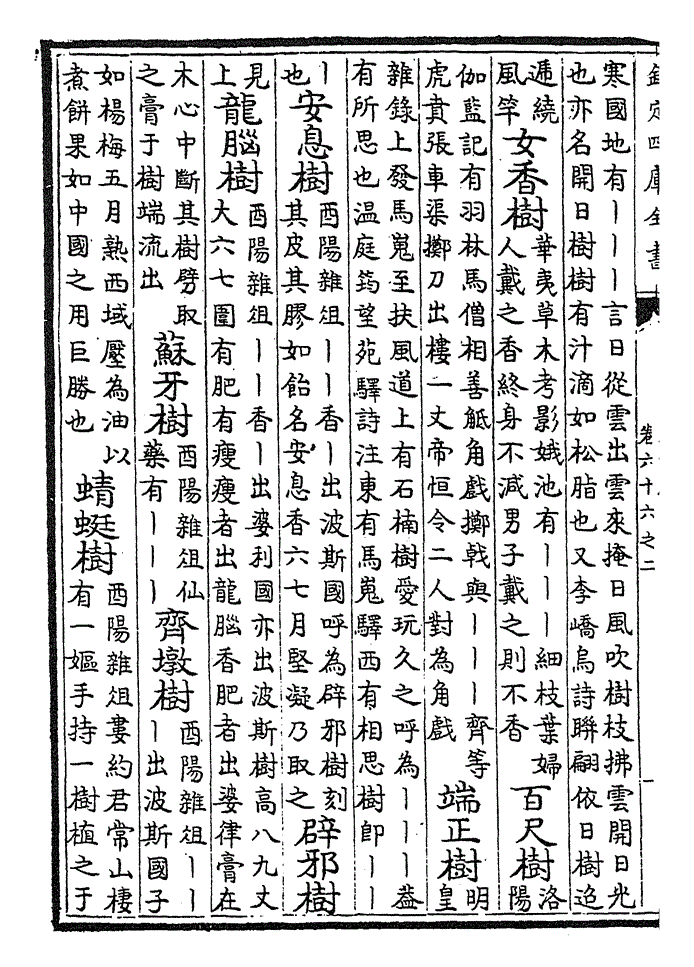 欽定四庫全書
卷六十六之二
寒國地有丨丨丨言日從雲出雲來掩日風吹樹枝拂雲開日光
也亦名開日樹樹有汁滴如松脂也又李嶠烏詩聨翩依日樹迨
遞繞
風竿
女香樹
華夷草木考影娥池有丨丨丨細枝葉婦
人戴之香終身不減男子戴之則不香
百尺樹
洛
陽
伽藍記有羽林馬僧相善觝角戲擲戟與丨丨丨齊等
虎賁張車渠擲刀出樓一丈帝恒令二人對為角戲
端正樹
明
皇
雜錄上發馬嵬至扶風道上有石楠樹愛玩久之呼為丨丨丨葢
有所思也温庭筠望苑驛詩注東有馬嵬驛西有相思樹卽丨丨
丨
也
安息樹
酉陽雜俎丨丨香丨出波斯國呼為辟邪樹刻
其皮其膠如飴名安息香六七月堅凝乃取之
辟邪樹
見
上
龍腦樹
酉陽雜俎丨丨香丨出婆利國亦出波斯樹高八九丈
大六七圍有肥有瘦瘦者出龍腦香肥者出婆律膏在
木心中斷其樹劈取
之膏于樹端流出
蘇牙樹
酉陽雜俎仙
藥有丨丨丨
齊墩樹
酉陽雜俎丨丨
丨出波斯國子
如楊梅五月熟西域壓為油以
煮餅果如中國之用巨勝也
蜻蜓樹
酉陽雜俎婁約君常山棲
有一嫗手持一樹植之于